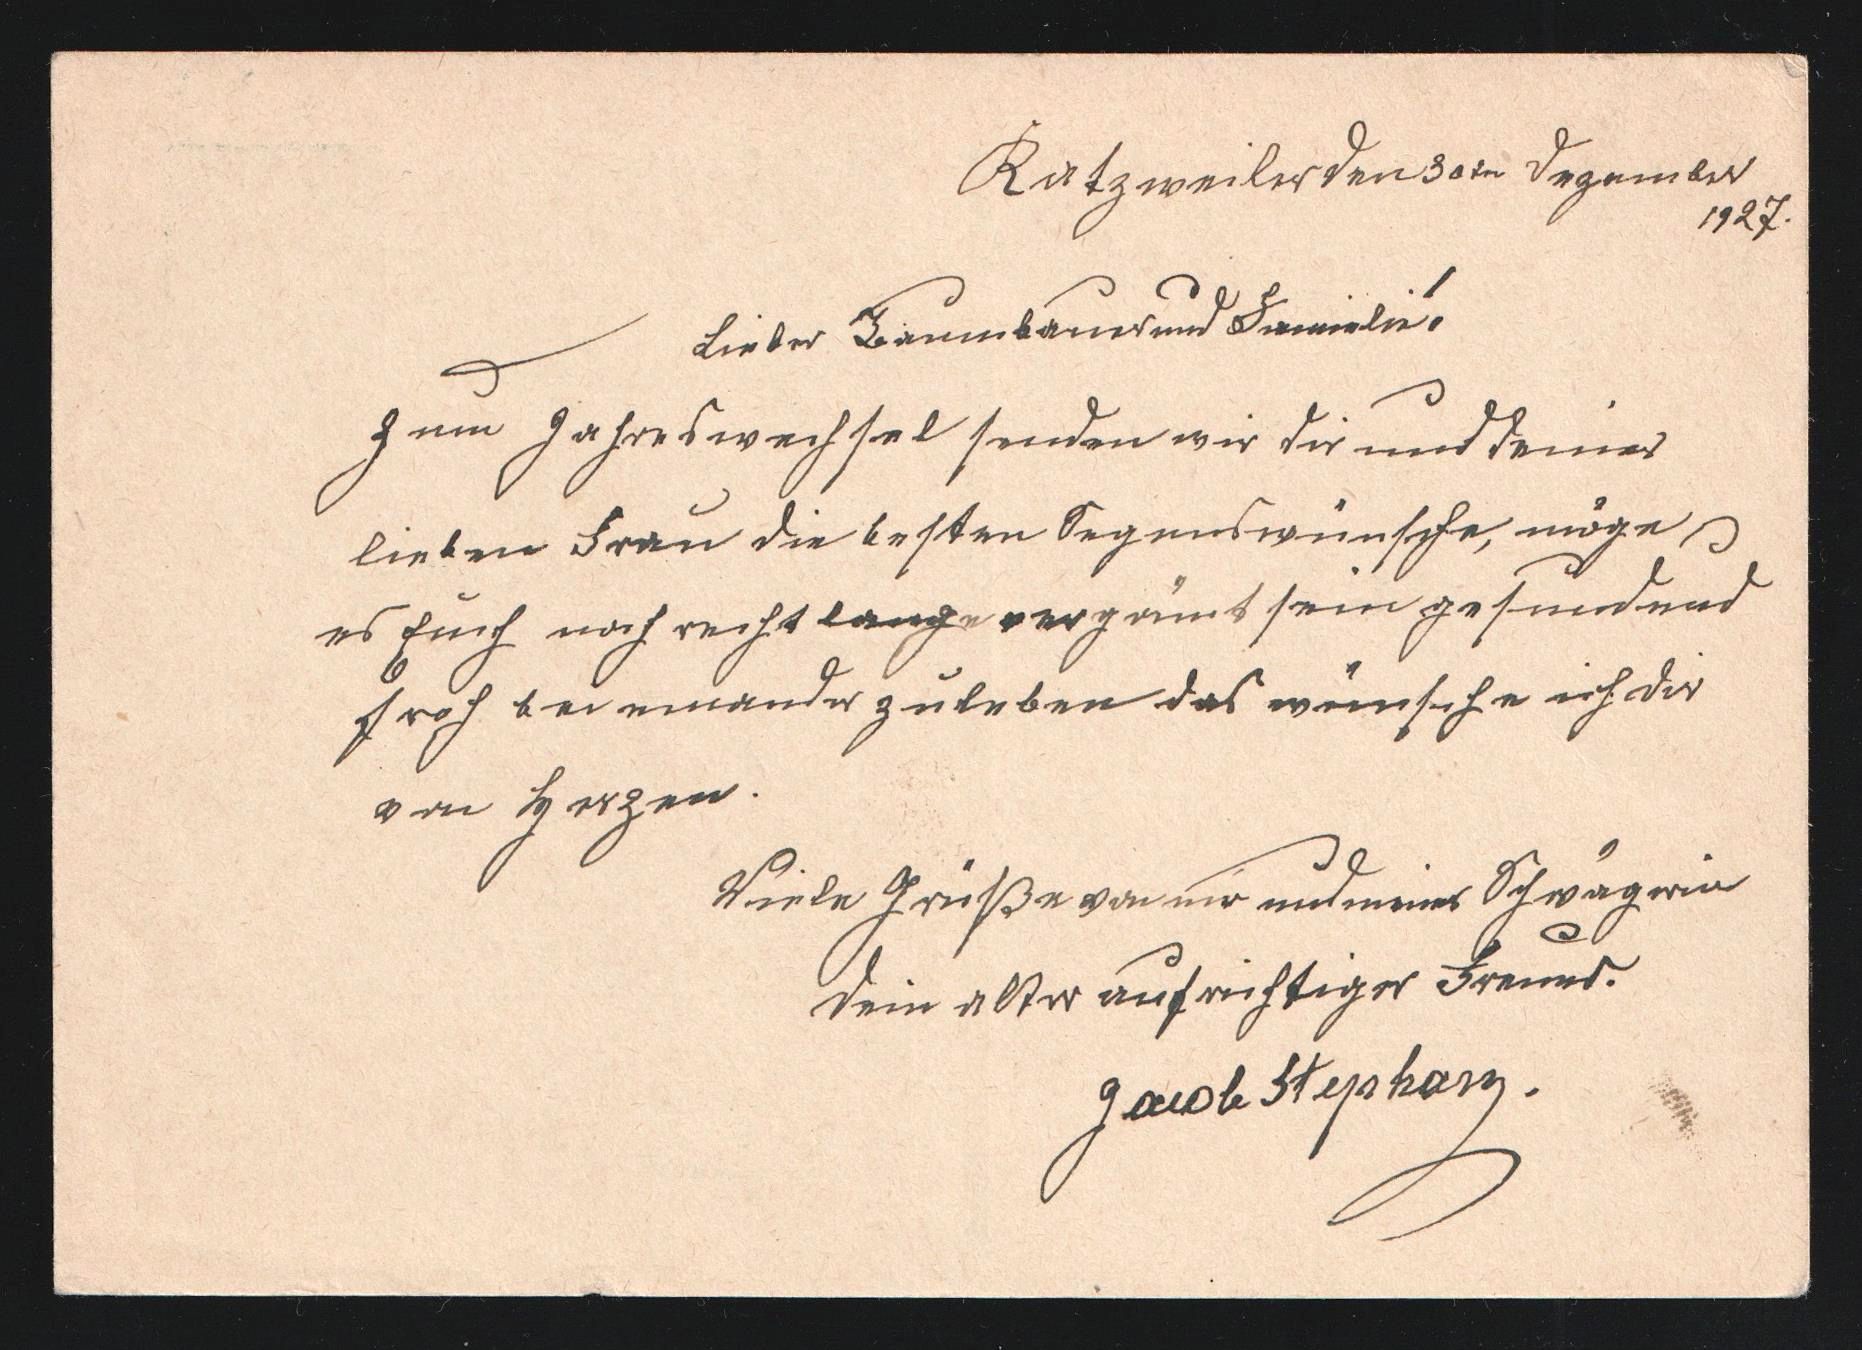 Katzweiler den 30ten Dezember
1927.
Lieber Baumbauer und Familie!
Zum Jahreswechsel senden wir dir und deiner
lieben Frau die besten Segenswünsche, möge
es Euch noch recht lange vergönnt sein gesund und
froh bei einander zu leben das wünsche ich dir
von Herzen.
Viele Grüße von mir und meiner Schwägerin
dein alter aufrichtiger Freund.
Jacob Stephany.